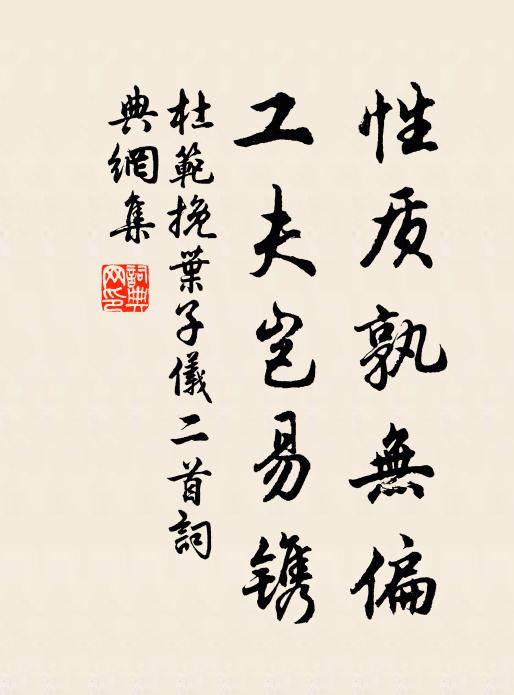 性质孰無偏
工夫岂易镌
杜範挽葉子儀二首詞
典網集
詞典网印